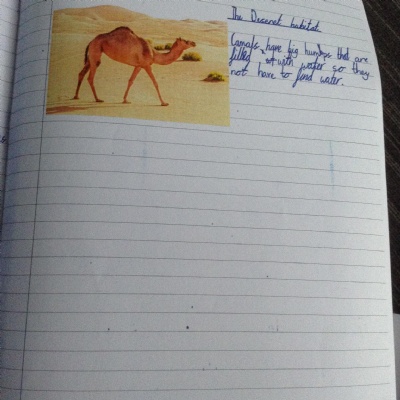 The Deseret habitat
Camals have big humps that are
filled with water so they
not have to find water.